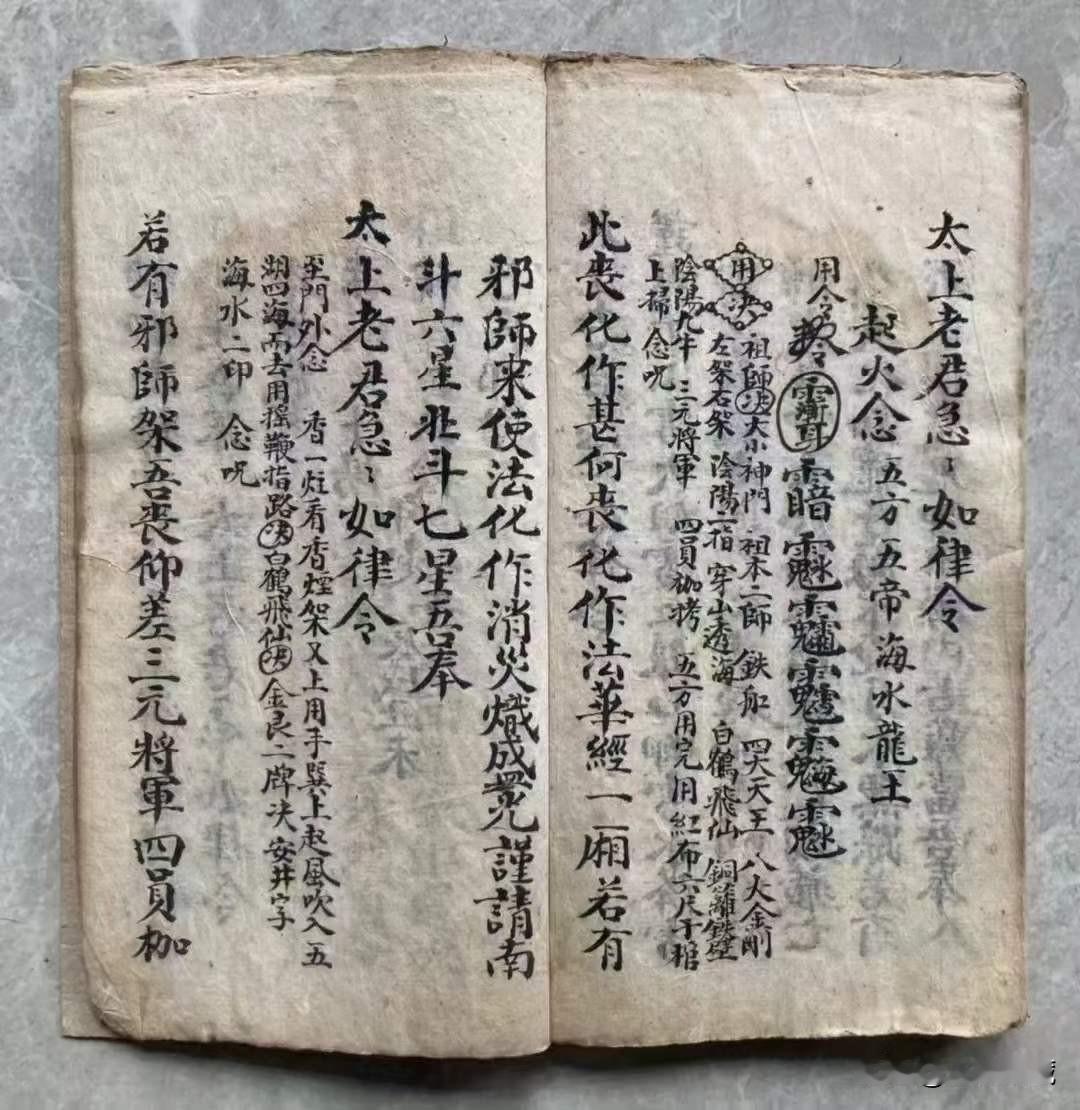 太上老君急〻如律令
起火念 五方五帝海水龍王
用令
用決 祖師決大小神門 祖本二師 鉄船 四大天王 八大金剛
左架右架 陰陽一指 穿山透海 白鶴飛仙 銅籬鉄壁
陰陽九牛 三元將軍 四員枷拷 五方用完用紅布六尺于棺
上掃 念呪
此喪化作甚何喪化作法華經一二廂若有
邪師来使法化作消災熾成光謹請南
斗六星北斗七星吾奉
太上老君急〻如律令
至門外念 香一炷看香煙架又上用手巽上起風吹入五
湖四海而去用搖鞭指路決白鶴飛仙決金艮二牌决安井字
海水二印 念呪
若有邪師架吾喪仰差三元將軍四員枷